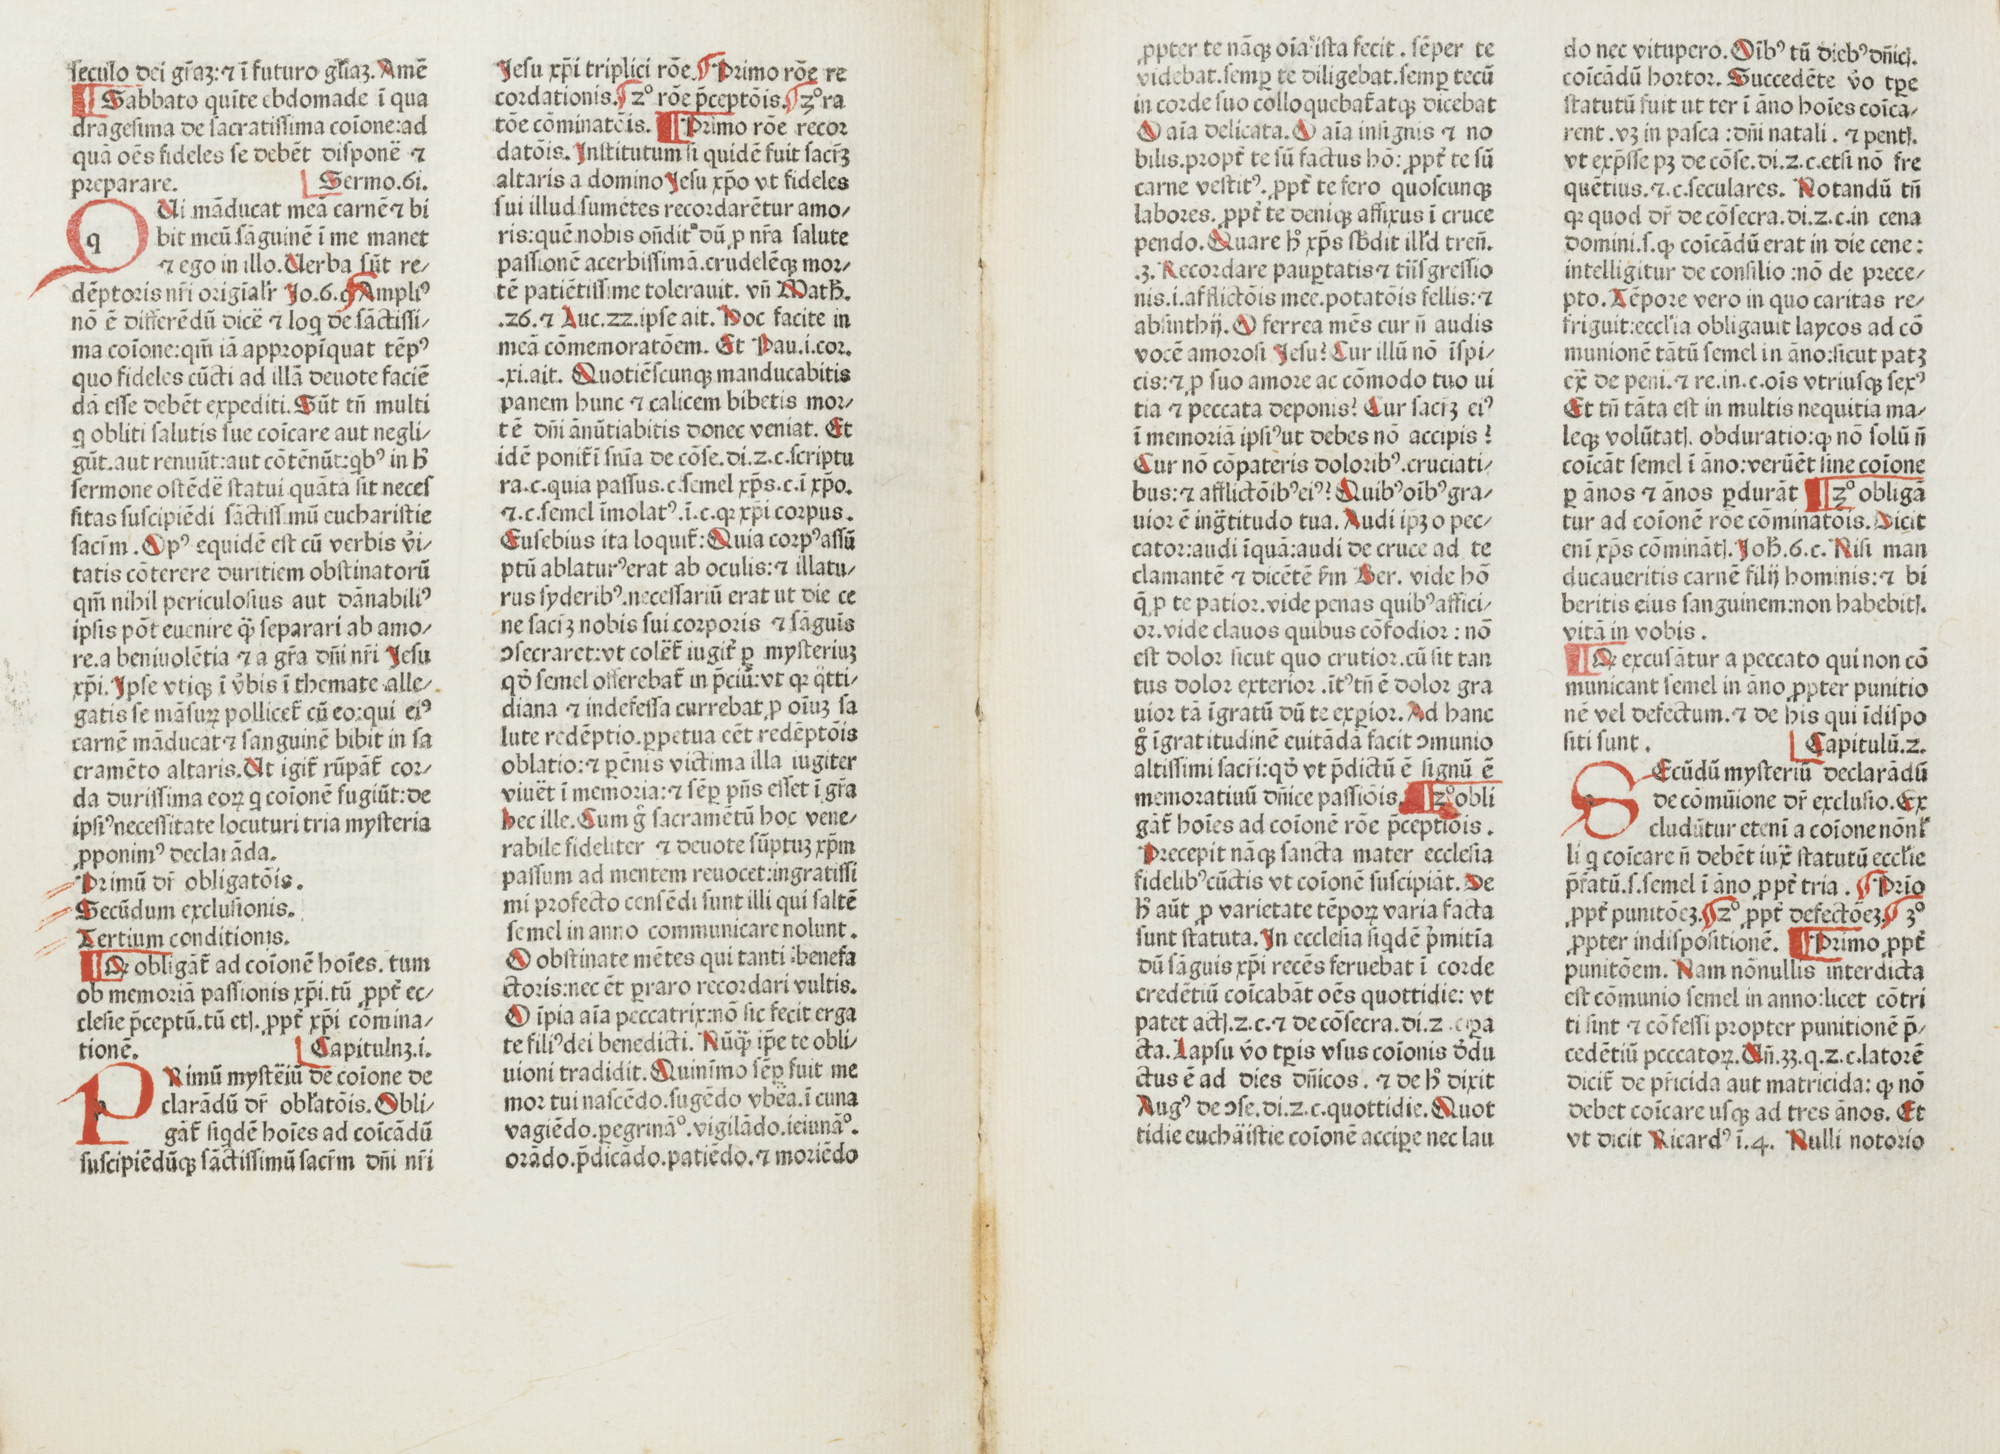 seculo dei gr̄aʒ:⁊ ī futuro gl̄iaʒ.Amē
¶ Sabbato quīte ebdomade ī qua
dragesima de sacratissima coīone:ad
quā oēs fideles se debēt disponē ⁊
preparare. Sermo.61.
QUi māducat meā carnē⁊ bi
bit meū sāguinē ī me manet
⁊ ego in illo.Uerba sūt re/
dēptoris nr̄i origīalr̄ Jo.6.q̄ Ampliꝰ
nō ē differēdū dicē ⁊ loq̄ de sāctissi/
ma coīone:qm̄ iā appropīquat tēpꝰ
quo fideles cūcti ad illā deuote faciē
dā esse debēt expediti.Sūt tn̄ multi
q obliti salutis sue coīcare aut negli/
gūt.aut renuūt:aut cōtēnūt:qbꝰ in h̄
sermone ostēdē statui quāta sit neces
sitas suscipiēdi sāctissimū eucharistie
sacr̄m.Opꝰ equidē est cū verbis v̄i/
tatis cōterere duritiem obstinatorū
qm̄ nihil periculosius aut dānabiliꝰ
ipsis pōt euenire q̄ꝫ separari ab amo/
re.a beniuolētia ⁊ a gr̄a dn̄i nr̄i Jesu
xp̄i.Ipse vtiqꝫ ī v̄bis ī themate alle/
gatis se māsuꝝ pollicet̄ cū eo:qui eiꝰ
carnē māducat⁊ sanguinē bibit in sa
cramēto altaris.At igit̄ rūpāt̄ cor/
da durissima eoꝝ q coīonē fugiūt:de
ipsiꝰnecessitate locuturi tria mysteria
ꝓponimꝰ declarāda.
Primū dr̄ obligatōis.
Secūdum exclusionis.
Tertium conditionis.
¶ Qꝛ obligāt̄ ad coīonē hoīes.tum
ob memoriā passionis xp̄i.tū ꝓpt̄ ec/
clesie p̄ceptū.tū etꝭ.ꝓpt̄ xp̄i cōmina/
tionē. Capitulnʒ.i.
PRimū mystēiū de coīone de
clarādū dr̄ obl̄atōis.Obli/
gāt̄ siqdē hoīes ad coīcādū
suscipiēdūqꝫ sāctissimū sacr̄m dn̄i nr̄i
Jesu xp̄i triplici rōe.Primo rōe re
cordationis.2° rōe p̄ceptōis.3°ra
tōe cōminatōis. ¶ Primo rōe recor
datōis.Institutum si quidē fuit sacr̄ʒ
altaris a domino Jesu xp̄o vt fideles
sui illud sumētes recordarētur amo/
ris:quē nobis on̄ditˢ dū ꝓ nr̄a salute
passionē acerbissimā.crudelēqꝫ mor/
tē patiētissime tolerauit. vn̄ Math̄.
.26.⁊ Luc.22.ipse ait. Hoc facite in
meā cōmemoratōem. Et Pau.i.cor.
.xi.ait. Quotiēscunqꝫ manducabitis
panem hunc ⁊ calicem bibetis mor/
tē dn̄i ānūtiabitis donec veniat. Et
idē ponit̄ ī sn̄ia de cōse.di.2.c.scriptu
ra.c.quia passus.c.semel xp̄s.c.ī xp̄o.
⁊.c.semel īmolatꝰ.ī.c.qꝛ xp̄i corpus.
Eusebius ita loquit̄:Quia corpꝰassū
ptū ablaturꝰerat ab oculis:⁊ illatu/
rus syderibꝰ.necessariū erat ut die ce
ne sacr̄ʒ nobis sui corporis ⁊ sāguis
ↄsecraret:vt colet̄ iugit̄ ꝑ mysteriuʒ
qd̄ semel offerebat̄ in p̄ciū:vt qꝛ q̈tti/
diana ⁊ indefessa currebat ꝓ oīuʒ sa
lute redēptio.ꝑpetua eēt redēptōis
oblatio:⁊ ꝑēnis victima illa iugiter
viuēt ī memoria:⁊ sēꝑ pn̄s esset ī gr̄a
hec ille.Cum g̊ sacramētū hoc vene/
rabile fideliter ⁊ deuote sūptuʒ xp̄m
passum ad mentem reuocet:ingratissi
mi profecto censēdi sunt illi qui saltē
semel in anno communicare nolunt.
O obstinate mētes qui tanti benefa
ctoris:nec ēt ꝑraro recordari vultis.
O īpia aīa peccatrix:nō sic fecit erga
te filiꝰdei benedicti. Nūq̄ꝫ ip̄e te obli/
uioni tradidit.Quinīmo sēꝑ fuit me
mor tui nascēdo.sugēdo vbēa.ī cuna
vagiēdo.ꝑegrinā°.vigilādo.ieiunā°.
orādo.p̄dicādo.patiēdo.⁊ moriēdo
ꝓpter te nāqꝫ oīa ista fecit.sēper te
videbat.semꝑ te diligebat.semꝑ tecū
in corde suo colloquebat̄ atqꝫ dicebat
O aīa delicata.O aīa insignis ⁊ no
bilis.propt̄ te sū factus hō:ꝓpt̄ te sū
carne vestitꝰ.ꝓpt̄ te fero quoscunqꝫ
labores.ꝓpt̄ te deniqꝫ affixus ī cruce
pendo.Quare h̄ xp̄s sb̄dit ill̄d tren̄.
.3.Recordare pauꝑtatis⁊ trn̄sgressio
nis.i.afflictōis mee.potatōis fellis:⁊
absinthij.O ferrea mēs cur n̄ audis
vocē amorosi Jesu? Cur illū nō īspi/
cis:⁊ ꝓ suo amore ac cōmodo tuo ui
tia ⁊ peccata deponis? Cur sacr̄ʒ eiꝰ
ī memoriā ipsiꝰut debes nō accipis?
Cur nō cōpateris doloribꝰ.cruciati/
bus:⁊ afflictōibꝰeiꝰ?Quibꝰoībꝰgra/
uior ē ingr̄titudo tua. Audi ipʒ o pec/
cator:audi īquā:audi de cruce ad te
clamantē ⁊ dicētē s̄m Ber. vide hō
q̄ ꝓ te patior.vide penas quibꝰaffici/
or.vide clauos quibus cōfodior:nō
est dolor sicut quo crutior.cū sit tan
tus dolor exterior.ītꝰtn̄ ē dolor gra
uior tā īgratū dū te exꝑior.Ad hanc
g̊ īgratitudinē euitādā facit ↄmunio
altissimi sacr̄i:qd̄ vt p̄dictū ē signū ē
memoratiuū dn̄ice passiōis. ¶ 2°obli
gāt̄ hoīes ad coīonē rōe p̄ceptiōis.
Precepit nāqꝫ sancta mater ecclesia
fidelibꝰcūctis vt coīonē suscipiāt. De
h̄ aūt ꝓ varietate tēpoꝝ varia facta
sunt statuta.In ecclesia siqdē p̄mitīa
dū sāguis xp̄i recēs feruebat ī corde
credētiū coīcabāt oēs quottidie: vt
patet actꝭ.2.c.⁊ de cōsecra.di.2.
cta.Lapsu v̊o tꝑis vsus coīonis r̄du
ctus ē ad dies dn̄icos. ⁊ de h̄ dixit
Augꝰ de ↄse.di.2.c.quottidie.Quot
tidie euchāistie coīonē acciꝑe nec lau
do nec vitupero.Oībꝰ tū diebꝰdn̄icꝭ.
coīcādū hortor. Succedēte v̊o tꝑe
statutū fuit ut ter ī āno hoīes coīca/
rent.vʒ in pasca:dn̄i natali. ⁊ pentꝭ.
vt exp̄sse pʒ de cōse.di.2.c.etsi nō fre
quētius.⁊.c.seculares. Notandū tn̄
qꝛ quod dr̄ de cōsecra.di.2.c.in cena
domini.s.qꝫ coīcādū erat in die cene:
intelligitur de consilio:nō de prece/
pto.Tēpore vero in quo caritas re/
friguit:eccl̄ia obligauit laycos ad cō
munionē tātū semel in āno:sicut patʒ
ex̄ de peni.⁊ re.in.c.oīs vtriusqꝫ sexꝰ
Et tn̄ tāta est in multis nequitia ma/
leqꝫ volūtatꝭ. obduratio:qꝫ nō solū n̄
coīcāt semel ī āno:verūēt sine coīone
ꝑ ānos ⁊ ānos ꝑdurāt ¶ 2° obligā
tur ad coīonē rōe cōminatōis. Dicit
eni xp̄s cōminātꝭ.Joh̄.6.c. Nisi man
ducaueritis carnē filij hominis:⁊ bi
beritis eius sanguinem:non habebitꝭ.
vitā in vobis.
¶ Qꝛ excusātur a peccato qui non cō
municant semel in āno ꝓpter punitio
nē vel defectum.⁊ de his qui īdispo
siti sunt. Capitulū.2.
SEcūdū mysteriū declarādū
de cōmūione dr̄ exclusio.Ex
cludūtur etenī a coīone nōnl̄
li q coīcare n̄ debēt iux̄ statutū eccl̄ie
p̄fatū.s.semel ī āno ꝓpt̄ tria. Prīo
ꝓpt̄ punitōeʒ.2° ꝓpt̄ defectōeʒ.3°
ꝓpter indispositionē. ¶ Primo ꝓpt̄
punitōem. Nam nōnullis interdicta
est cōmunio semel in anno:licet cōtri
ti sint ⁊ cōfessi propter punitionē p̄/
cedētiū pcccatoꝝ.Un̄.33.q.2.c.latorē
dicit̄ de pr̄icida aut matricida:qꝫ nō
debet coīcare usqꝫ ad tres ānos. Et
vt dicit Ricardꝰ ī.4. Nulli notorio